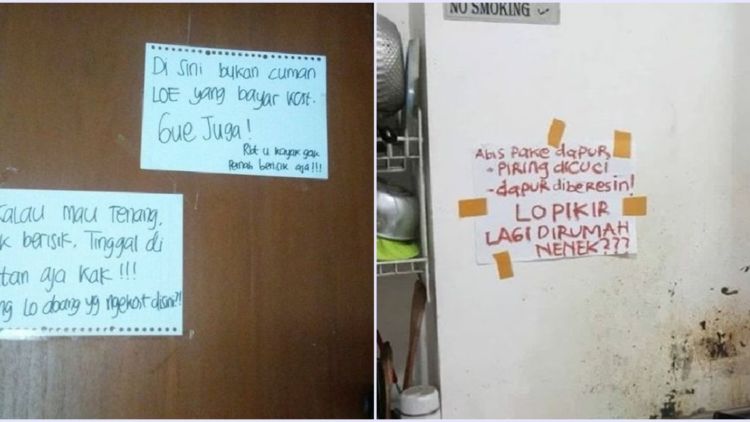 Di Sini bukan cuman
LOE yang bayar kost.
Gue Juga!
kayak gak
Pernah berisik aja!!!
Kalau Mau Tenang,
k berisik, Tinggal di
tan aja kak!!!
ng Lo abang yg ngekost disini?!
NO SMOKING
Abis pake dapur,
- PIRING DICUCI
- dapur diberesin!
LO PIKIR
LAGI DIRUMAH
NENEK???